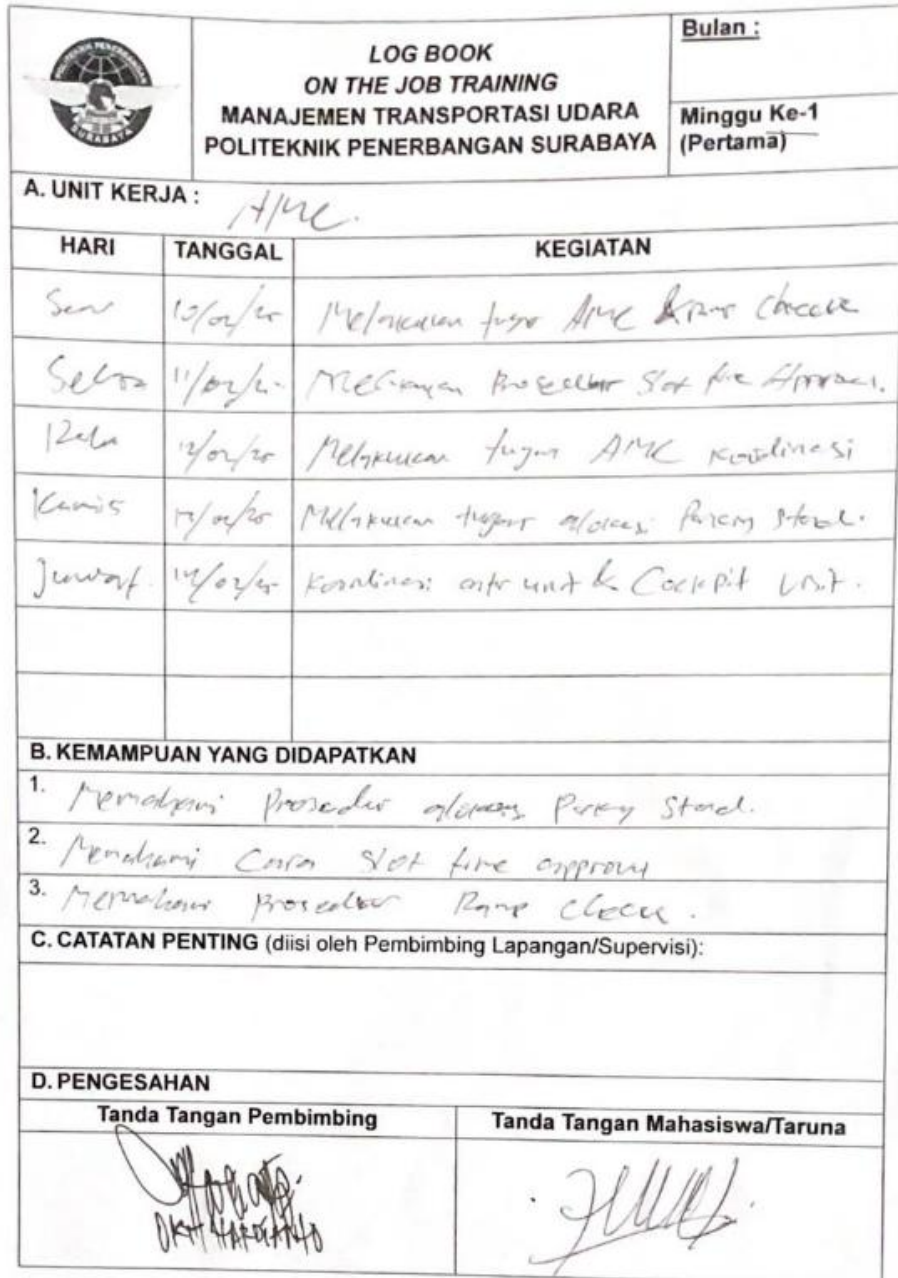 POLITEKNIK PENERBANGAN
SURABAYA
LOG BOOK
ON THE JOB TRAINING
MANAJEMEN TRANSPORTASI UDARA
POLITEKNIK PENERBANGAN SURABAYA
Bulan :
Minggu Ke-1
(Pertama)
A. UNIT KERJA : AMC.
HARI TANGGAL KEGIATAN
10/02/25 Melakukan tugas AMC & Ramp Check
Selasa 11/02/25 Prosedur Slot time Approval.
Rabu 12/02/25 Melakukan tugas AMC Koordinasi
Kamis 13/02/25 Melakukan tugas alokasi Parking Stand.
Jumat 14/02/25 Koordinasi antr unit & Cockpit Visit.
B. KEMAMPUAN YANG DIDAPATKAN
1. Memahami Prosedur alokasi Parking Stand.
2. Memahami Cara Slot time approval
3. Memahami Prosedur Ramp Check.
C. CATATAN PENTING (diisi oleh Pembimbing Lapangan/Supervisi):
D. PENGESAHAN
Tanda Tangan Pembimbing Tanda Tangan Mahasiswa/Taruna